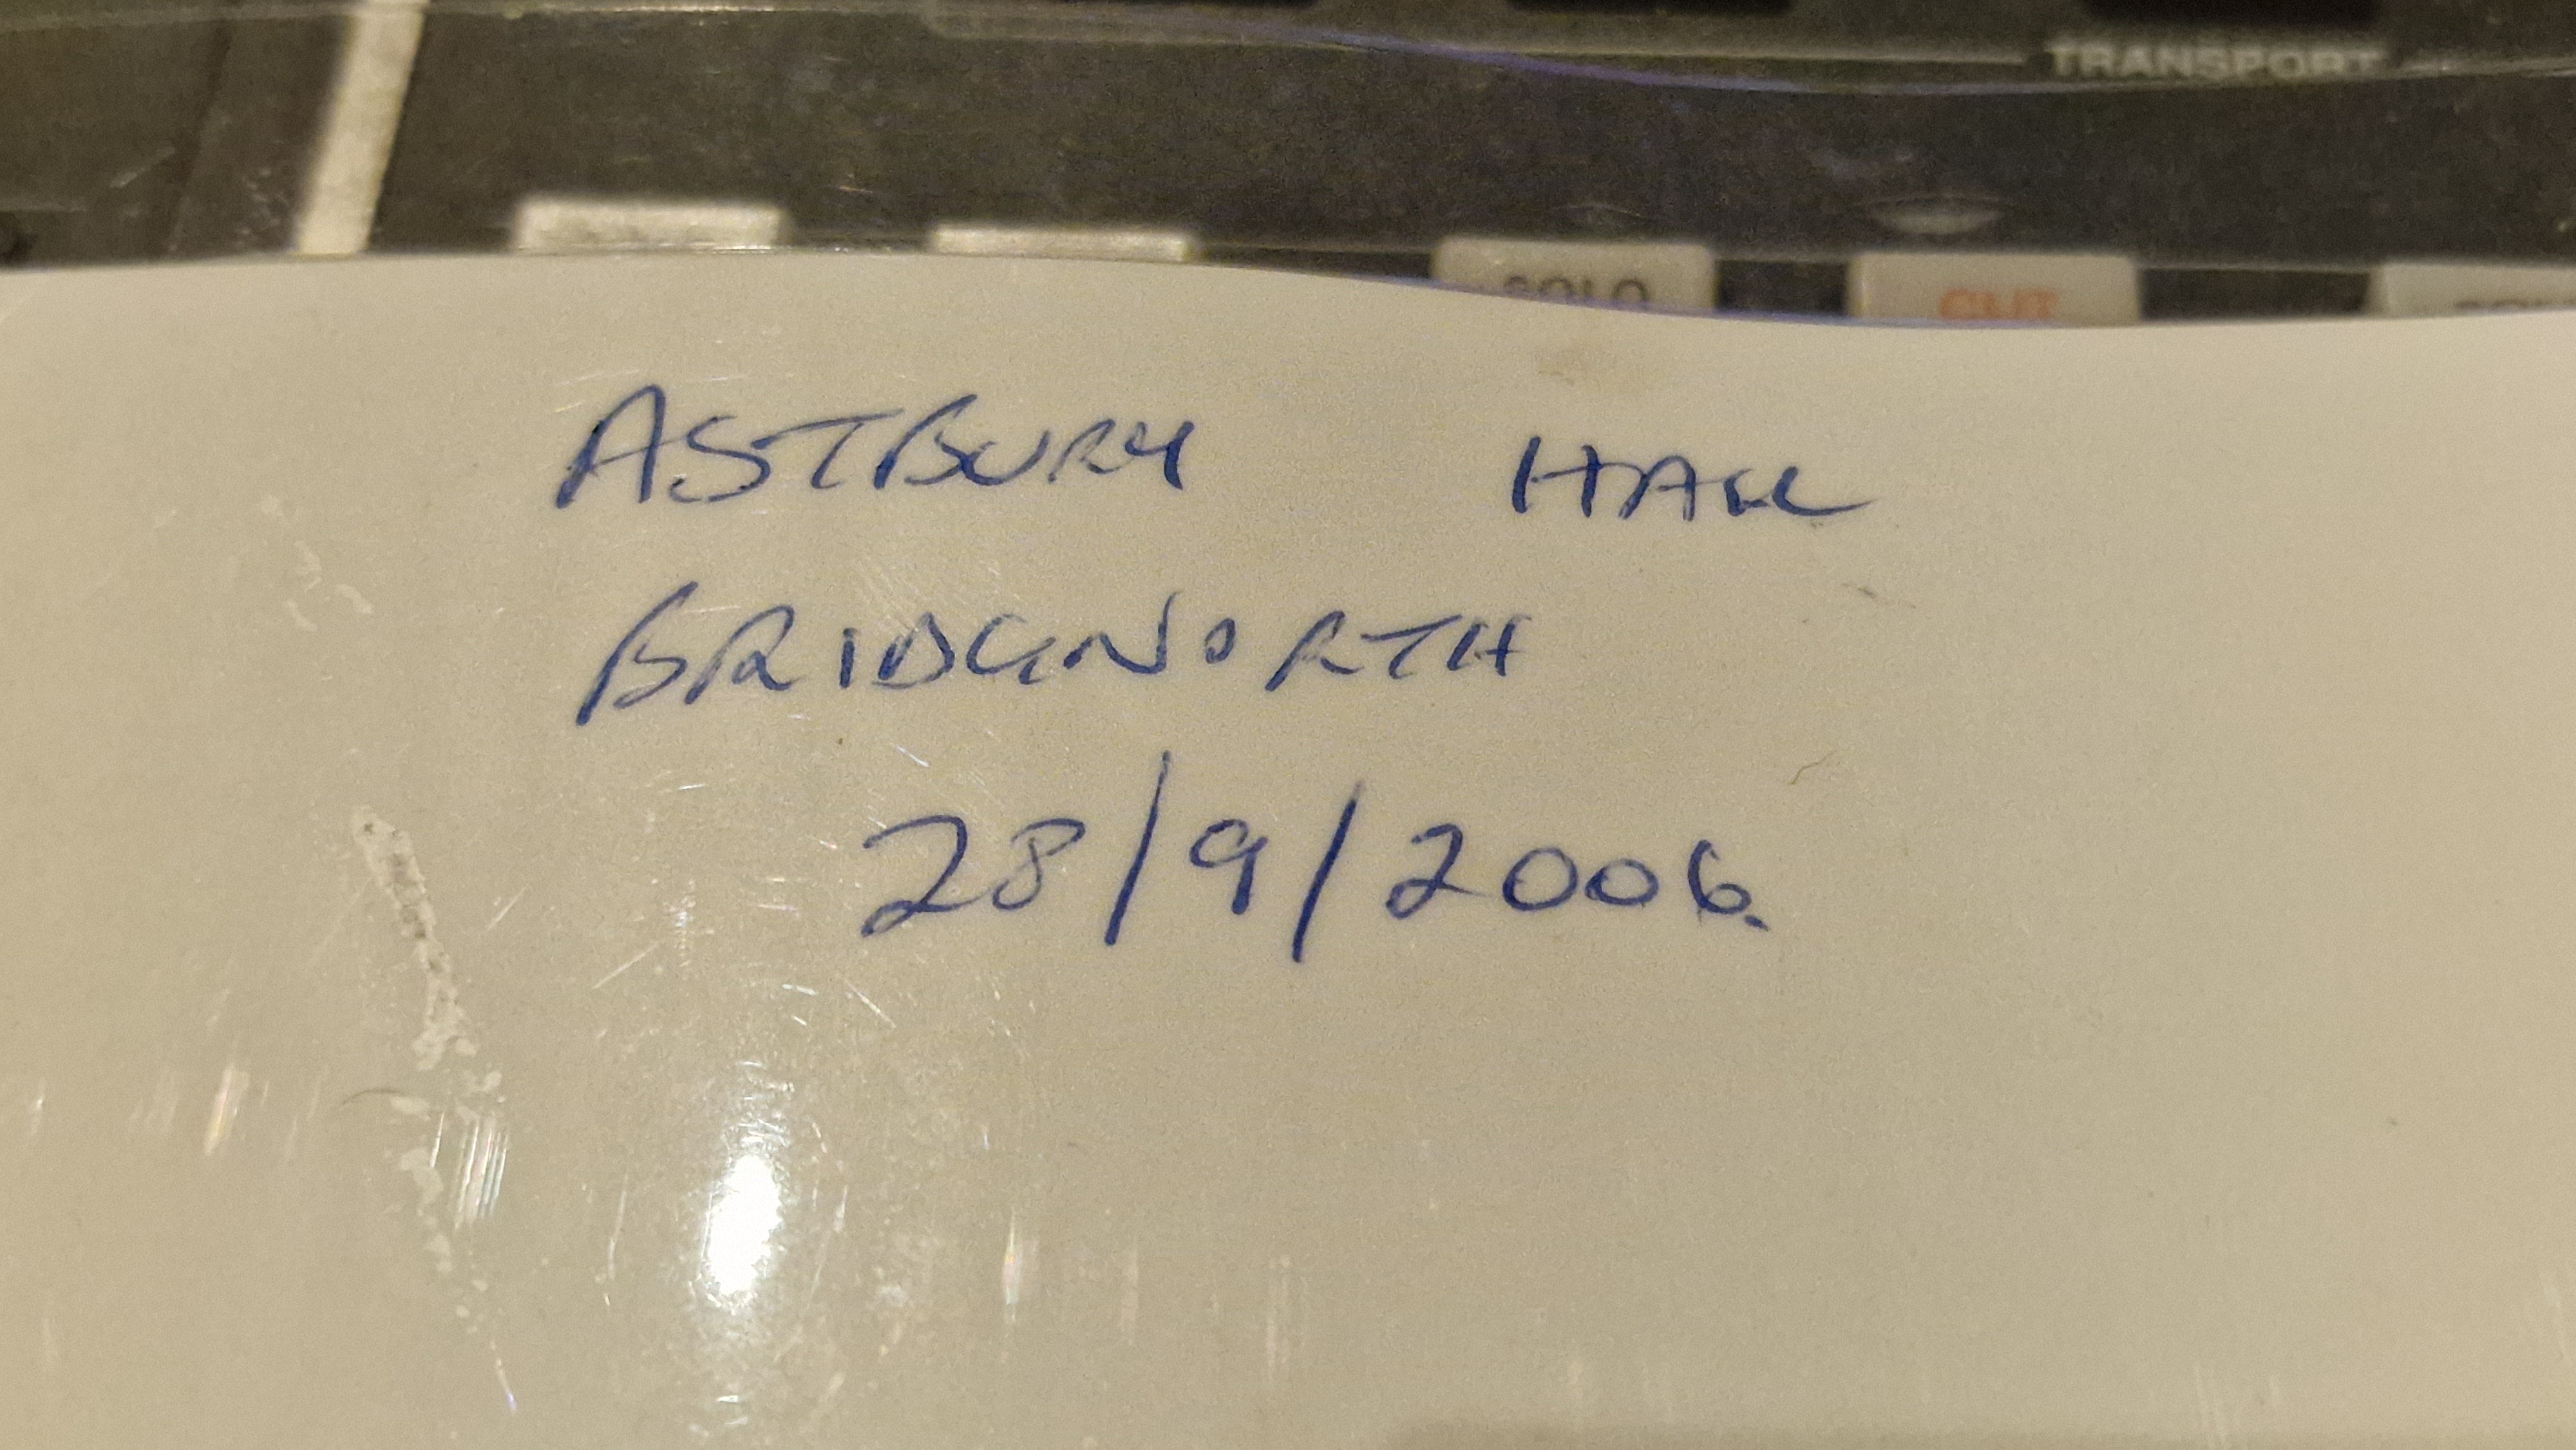 TRANSPORT
SOLO CUT
ASTBURY HALL
BRIDGNORTH
28/9/2006.